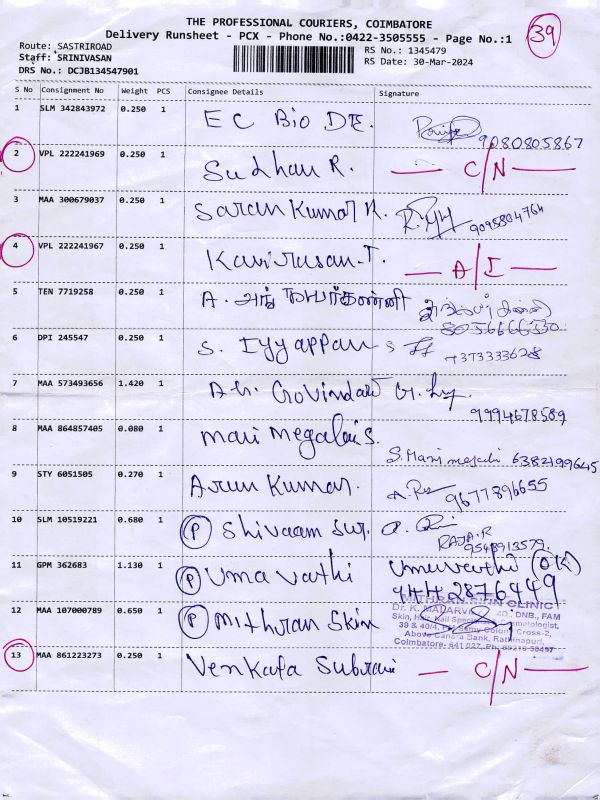 THE PROFESSIONAL COURIERS, COIMBATORE
39
Delivery Runsheet - PCX - Phone No.:0422-3505555 - Page No.:1
Route: SASTRIROAD
RS No.: 1345479
Staff: SRINIVASAN
RS Date: 30-Mar-2024
DRS No.: DCJB134547901
S No Consignment No Weight PCS Consignee Details Signature
1 SLM 342843972 0.250 1 E C Bio DE.
9080805867
2 VPL 222241969 0.250 1 Sudhan R. C/N
3 MAA 300679037 0.250 1 Saran Kumar R.
9095804764
4 VPL 222241967 0.250 1 Kavirasan.T. A/I
5 TEN 7719258 0.250 1 A. அங்கயர்கண்ணி
8056666530
6 DPI 245547 0.250 1 S. Iyyappan S
7373333628
7 MAA 573493656 1.420 1 A.G. Govindan
9994678589
8 MAA 864857405 0.080 1 Mari Megalai S.
6382199645
9 STY 6051505 0.270 1 Arun Kumar.
9677896655
10 SLM 10519221 0.680 1 P Shivaam Sur.
RAJA.R
9543913579.
11 GPM 362683 1.130 1 P Uma Vathi Umavathi (OK)
944 2876449
12 MAA 107000789 0.650 1 P Mithran Skin
MITHRAN SKIN CLINIC
Dr. K. MALARVIZHI DNB., FAM
Skin, Hair, Nail Specialist Cosmetologist,
39 & 40/4, Colony Cross-2,
Above Canara Bank, Rathinapuri,
Coimbatore- 641 027. Ph:
13 MAA 861223273 0.250 1 Venkata Subram C/N